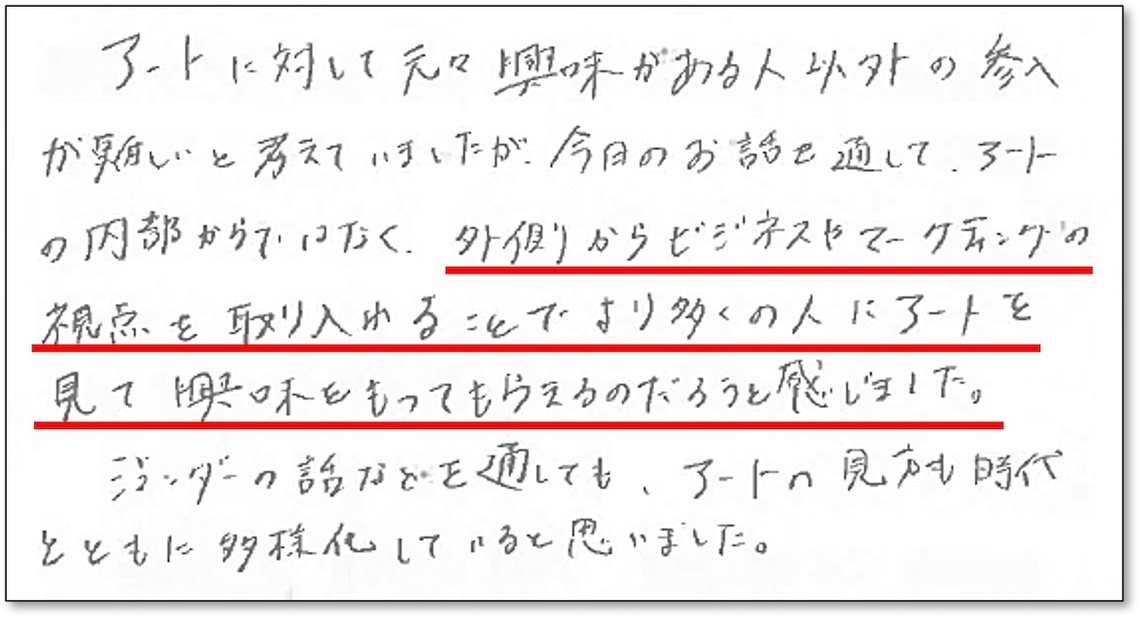 アートに対して元々興味がある人以外の参入
が難しいと考えていましたが、今日のお話を通して、アート
の内部からではなく、外側からビジネスやマーケティングの
視点を取り入れることでより多くの人にアートを
見て興味をもってもらえるのだろうと感じました。
ジェンダーの話などを通しても、アートの見方も時代
とともに多様化していると思いました。